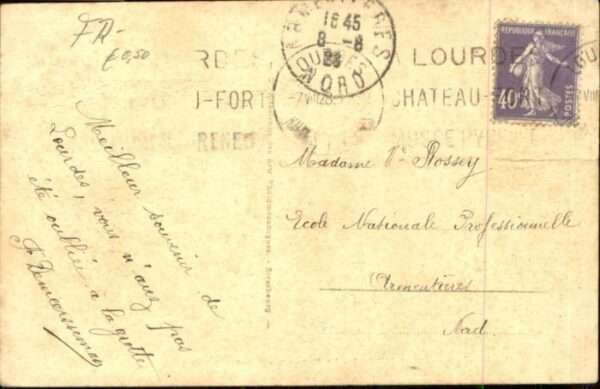 FR-
€ 0,50
ARMENTIERES
16 45
8 -8
28
NORD
LOURDE
I-FORT
CHATEAU-
MUSEE PYR
40
POSTES
Meilleur souvenir de
Lourdes, vous n'avez pas
été oubliée à la grotte
Madame Vve Rossey
Ecole Nationale Professionnelle
Armentières
Nord